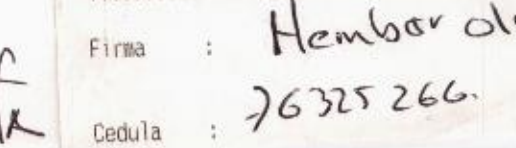 Firma : Hember ol
Cedula : 76325266.